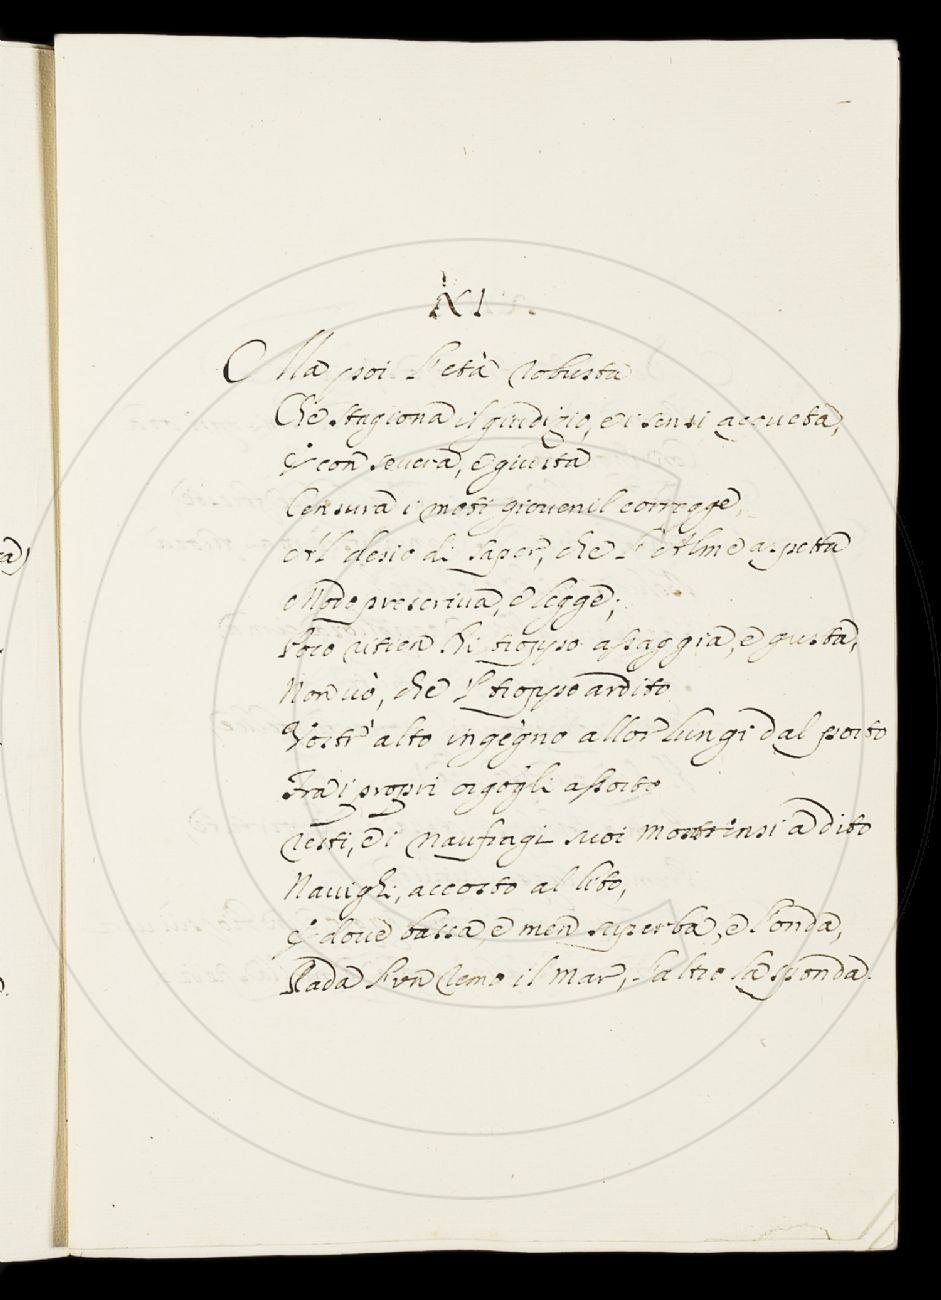 XI.
Ma poi l'età robusta
Che stagiona il giudizio, e i sensi acqueta,
E con severa, e giusta
Censura i moti giovenil corregge,
Al desio di saper, che l'Alme asseta
Modo prescriva, e legge;
Poco vi tien chi troppo assaggia, e gusta,
Non vò, che 'l troppo ardito
Vostr' alto ingegno allor lungi dal porto
Fra i propri orgogli assorto
resti, e i naufragi suoi mostrinsi a dito
Navighi, accosto al lito,
E dove bassa, e men superba, è l'onda,
Rada l'un remo il mar, l'altro la sponda.